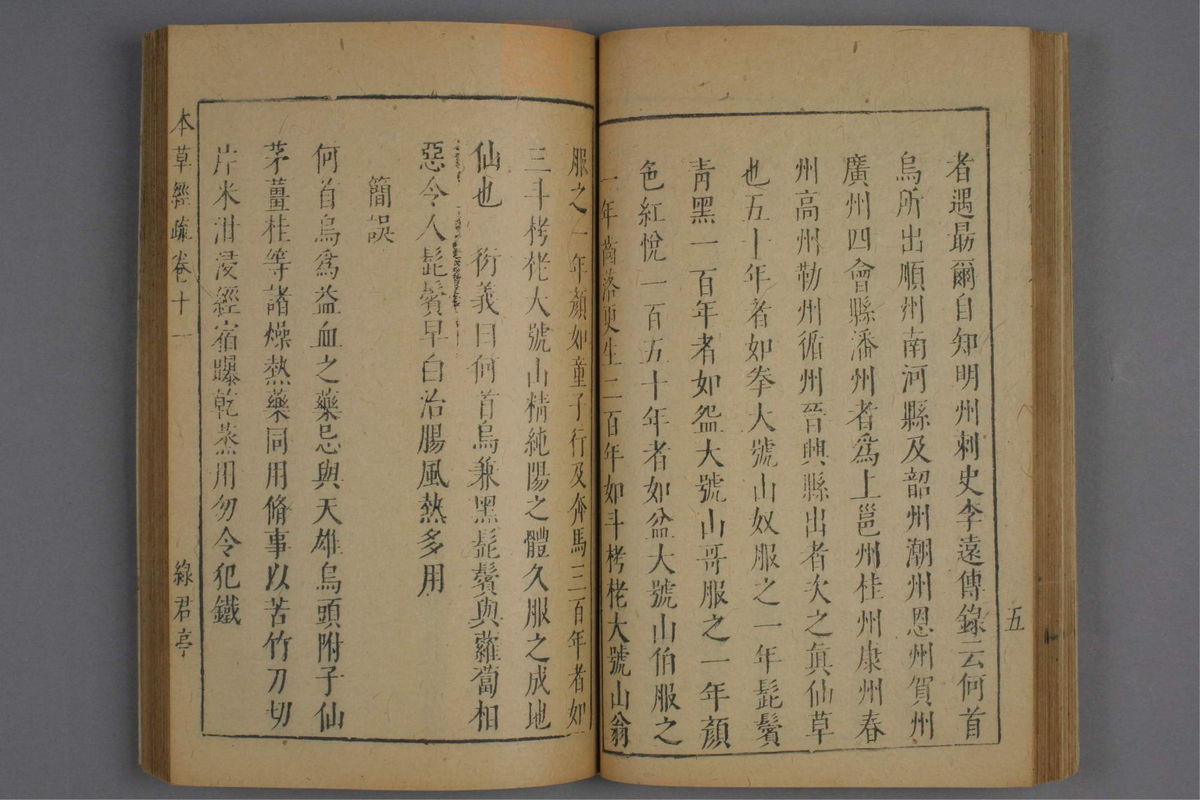 者遇最爾自知明州刺史李遠傳錄云何首
烏所出順州南河縣及韶州潮州恩州賀州
廣州四會縣潘州者爲上邕州桂州康州春
州高州勒州循州晉興縣出者次之眞仙草
也五十年者如拳大號山奴服之一年髭鬢
靑黑一百年者如盌大號山哥服之一年顏
色紅悅一百五十年者如盆大號山伯服之
一年齒落更生二百年如斗栲栳大號山翁
五
服之一年顏如童子行及奔馬三百年者如
三斗栲栳大號山精純陽之體久服之成地
仙也　衍義曰何首烏兼黑髭鬢與蘿蔔相
惡令人髭鬢早白治腸風熱多用
簡誤
何首烏爲益血之藥忌與天雄烏頭附子仙
茅薑桂等諸燥熱藥同用脩事以苦竹刀切
片米泔浸經宿曝乾蒸用勿令犯鐵
本草經疏卷十一　綠君亭